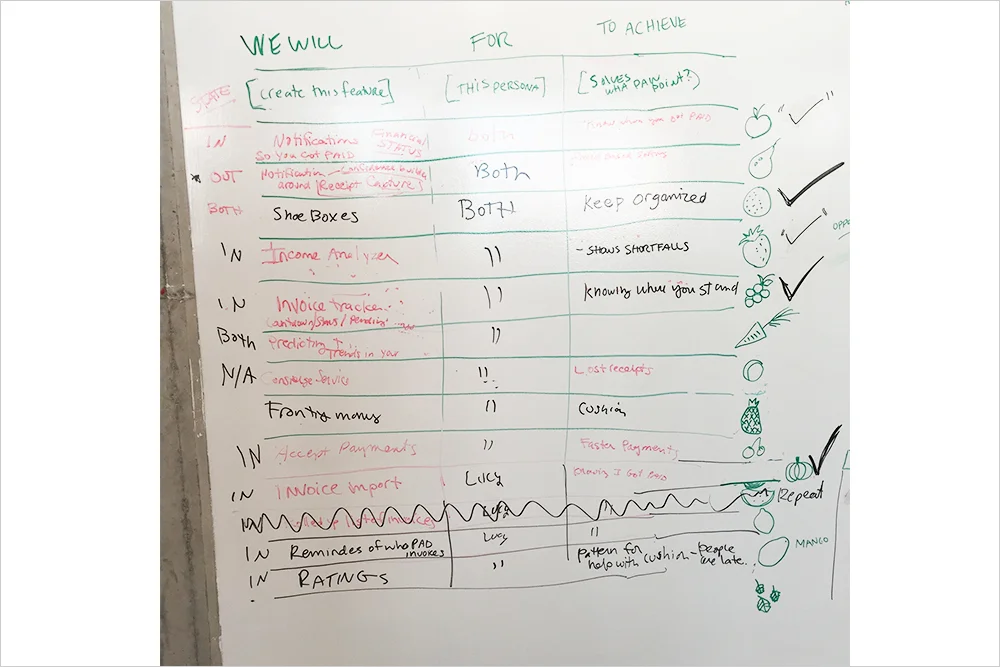 WE WILL FOR TO ACHIEVE
STATE [Create this feature] [THIS PERSONA] [SOLVES WHAT PAIN POINT?)
IN Notifications Financial STATUS Both Know where you Got PAID
SO YOU GOT PAID
* OUT Notification - Confidence builder Both
around [Receipt Capture]
BOTH Shoe Boxes BOTH Keep Organized
IN Income Analyzer " - SHOWS SHORTFALLS
OPPO
IN Invoice tracker " Knowing where you stand
/ Pending
Both Predicting " 
trends in your
N/A Concierge Service " Lost receipts
Fronting money " Cushion
IN Accept Payments " Faster Payments
IN Invoice import Lucy Knowing I Got PAID
Repeat
IN list of invoices Lucy
IN Remindes of who PAD Lucy "
invoices
MANGO
IN RATINGS " Pattern for
help with cushion - people
are late.